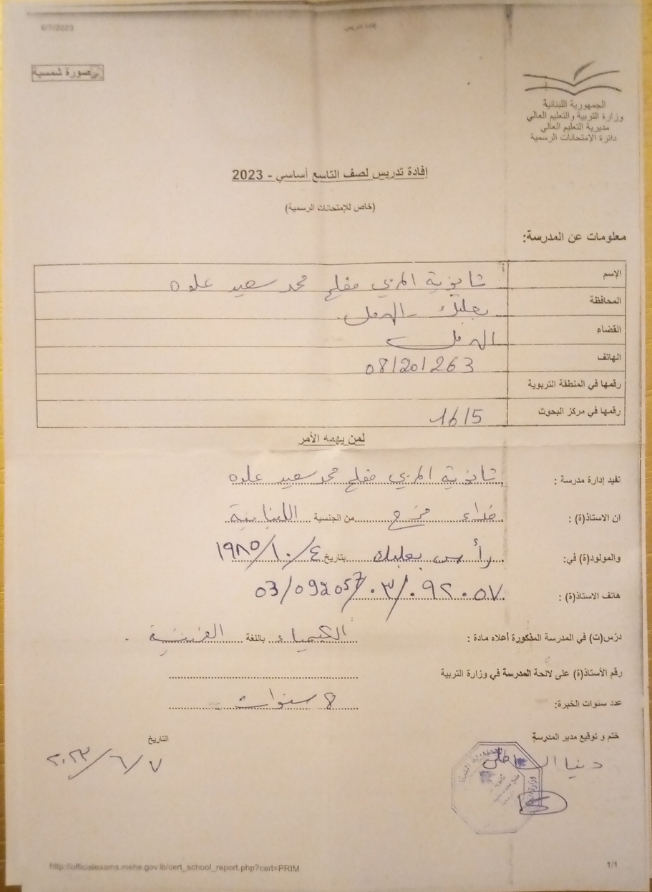 6/7/2023
صورة شمسية
الجمهورية اللبنانية
وزارة التربية والتعليم العالي
مديرية التعليم العالي
دائرة الإمتحانات الرسمية
إفادة تدريس لصف التاسع أساسي - 2023
(خاص للإمتحانات الرسمية)
معلومات عن المدرسة:
الإسم ثانوية المربي مفلح محمد سعيد علوه
المحافظة بعلبك - الهرمل.
القضاء الهرمل
الهاتف 08/201263
رقمها في المنطقة التربوية
رقمها في مركز البحوث 1615
لمن يهمه الأمر
تفيد إدارة مدرسة : ثانوية المربي مفلح محمد سعيد علوه
ان الاستاذ(ة) : فداء من الجنسية اللبنانية
والمولود(ة) في: رأس بعلبك بتاريخ ٤/١٠/١٩٨٥
هاتف الاستاذ(ة) : ٠٣/٠٩٢٠٥٧ 03/092057
درّس(ت) في المدرسة المذكورة أعلاه مادة : الكيمياء باللغة الفرنسية .
رقم الأستاذ(ة) على لائحة المدرسة في وزارة التربية
عدد سنوات الخبرة: ٨ سنوات
ختم و توقيع مدير المدرسة
التاريخ
دنيا
٢٠٢٣/٦/٧
http://officialexams.mehe.gov.lb/cert_school_report.php?cert=PRIM
1/1